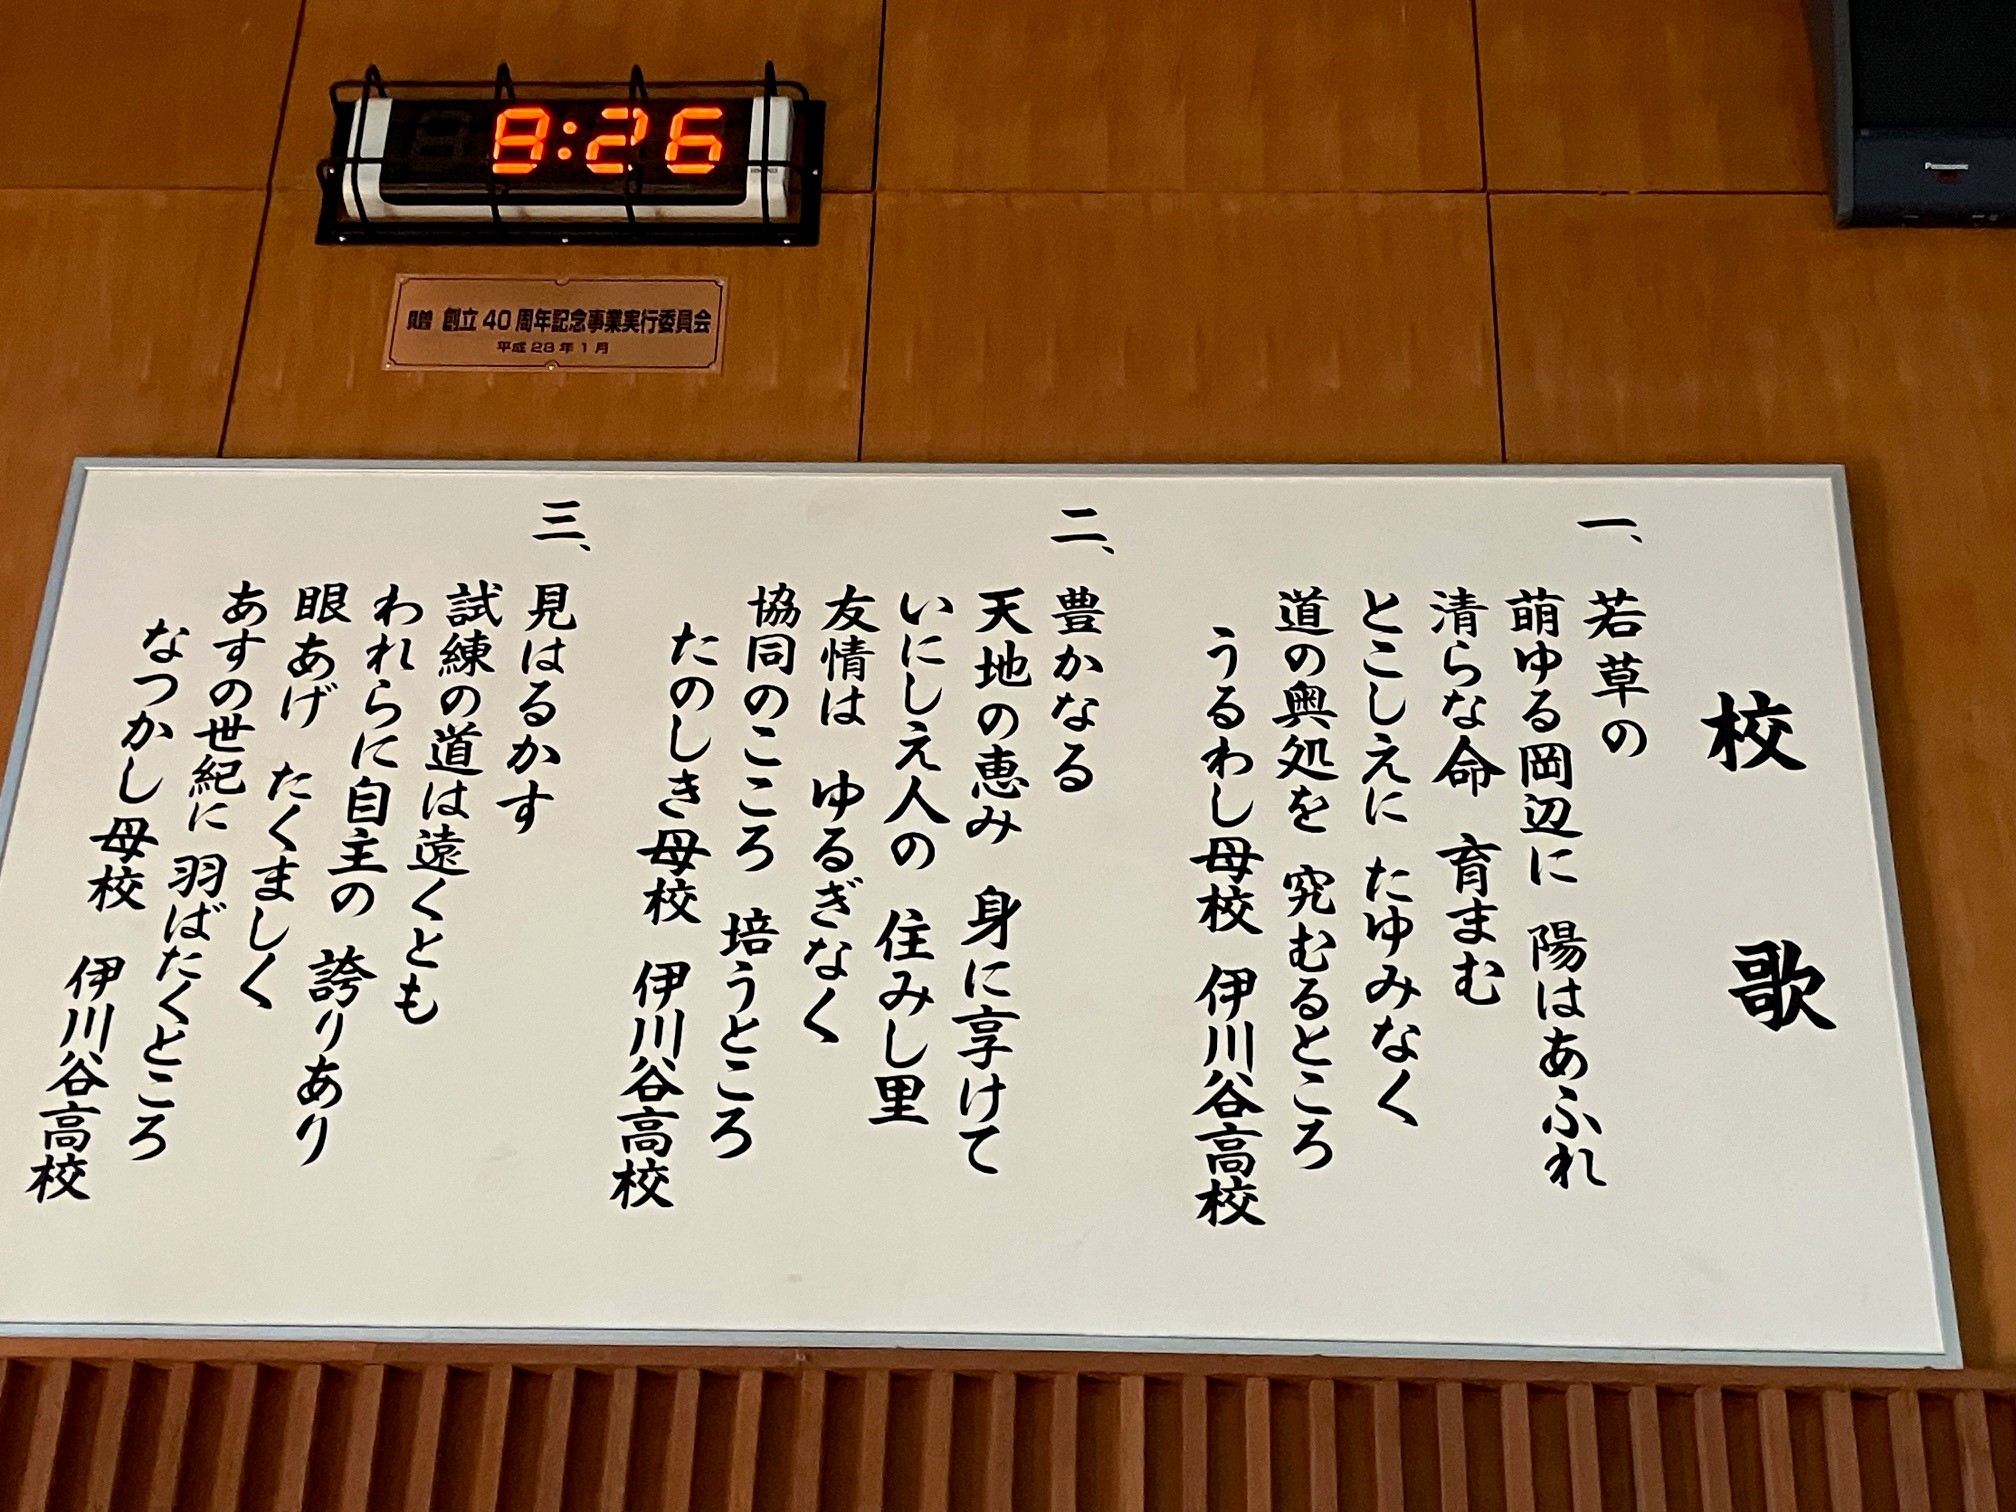 8:26
Panasonic
贈 創立40周年記念事業実行委員会
平成28年1月
校歌
一、若草の
萌ゆる岡辺に 陽はあふれ
清らな命 育まむ
とこしえに たゆみなく
道の奥処を 究むるところ
うるわし母校 伊川谷高校
二、豊かなる
天地の恵み 身に享けて
いにしえ人の 住みし里
友情は ゆるぎなく
協同のこころ 培うところ
たのしき母校 伊川谷高校
三、見はるかす
試練の道は遠くとも
われらに自主の 誇りあり
眼あげ たくましく
あすの世紀に 羽ばたくところ
なつかし母校 伊川谷高校